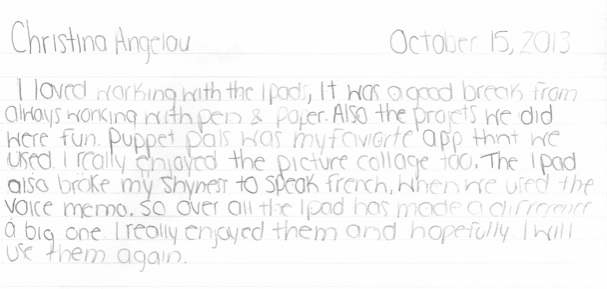 Christina Angelou October 15, 2013
I loved working with the Ipads, It was a good break from
always working with pen & paper. Also the projets we did
were fun. Puppet pals was my faviorte app that we
used. I really enjoyed the picture collage too. The Ipad
also broke my shyness to speak french, when we used the
voice memo. So over all the Ipad has made a difference
a big one. I really enjoyed them and hopefully I will
use them again.